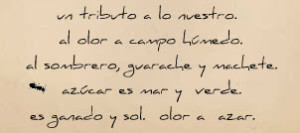 un tributo a lo nuestro.
al olor a campo húmedo.
al sombrero, guarache y machete.
azúcar es mar y verde.
es ganado y sol. olor a azar.